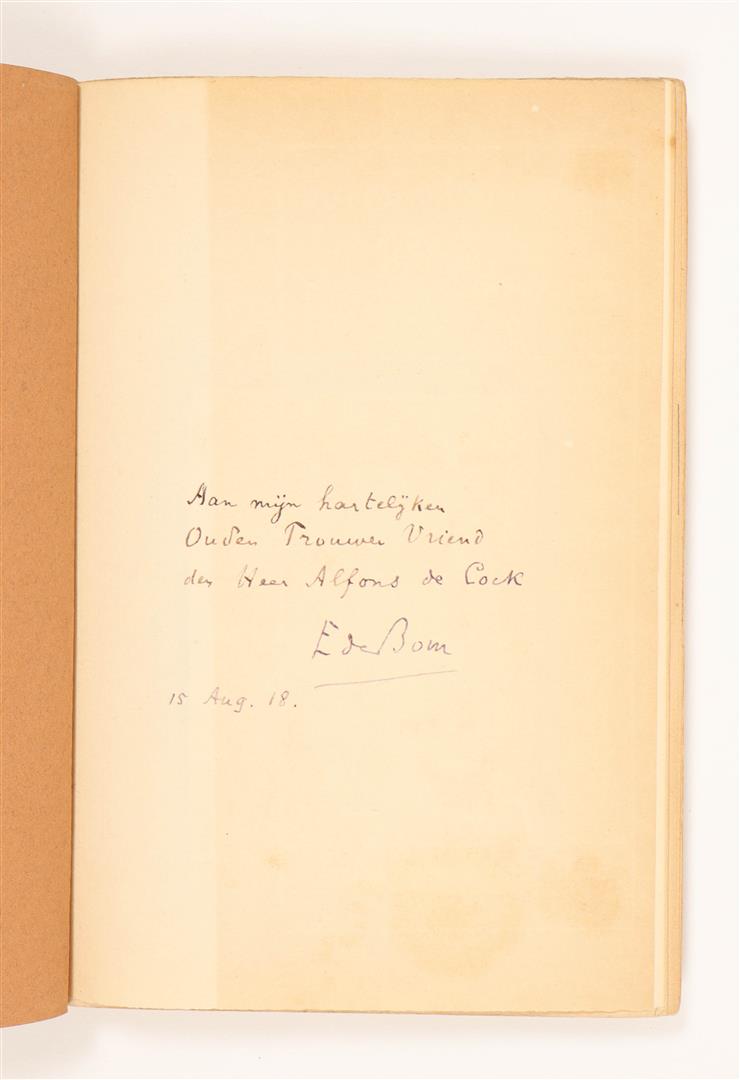 Aan mijn hartelijken
Ouden Trouwen Vriend
den Heer Alfons de Cock
E de Bom
15 Aug. 18.